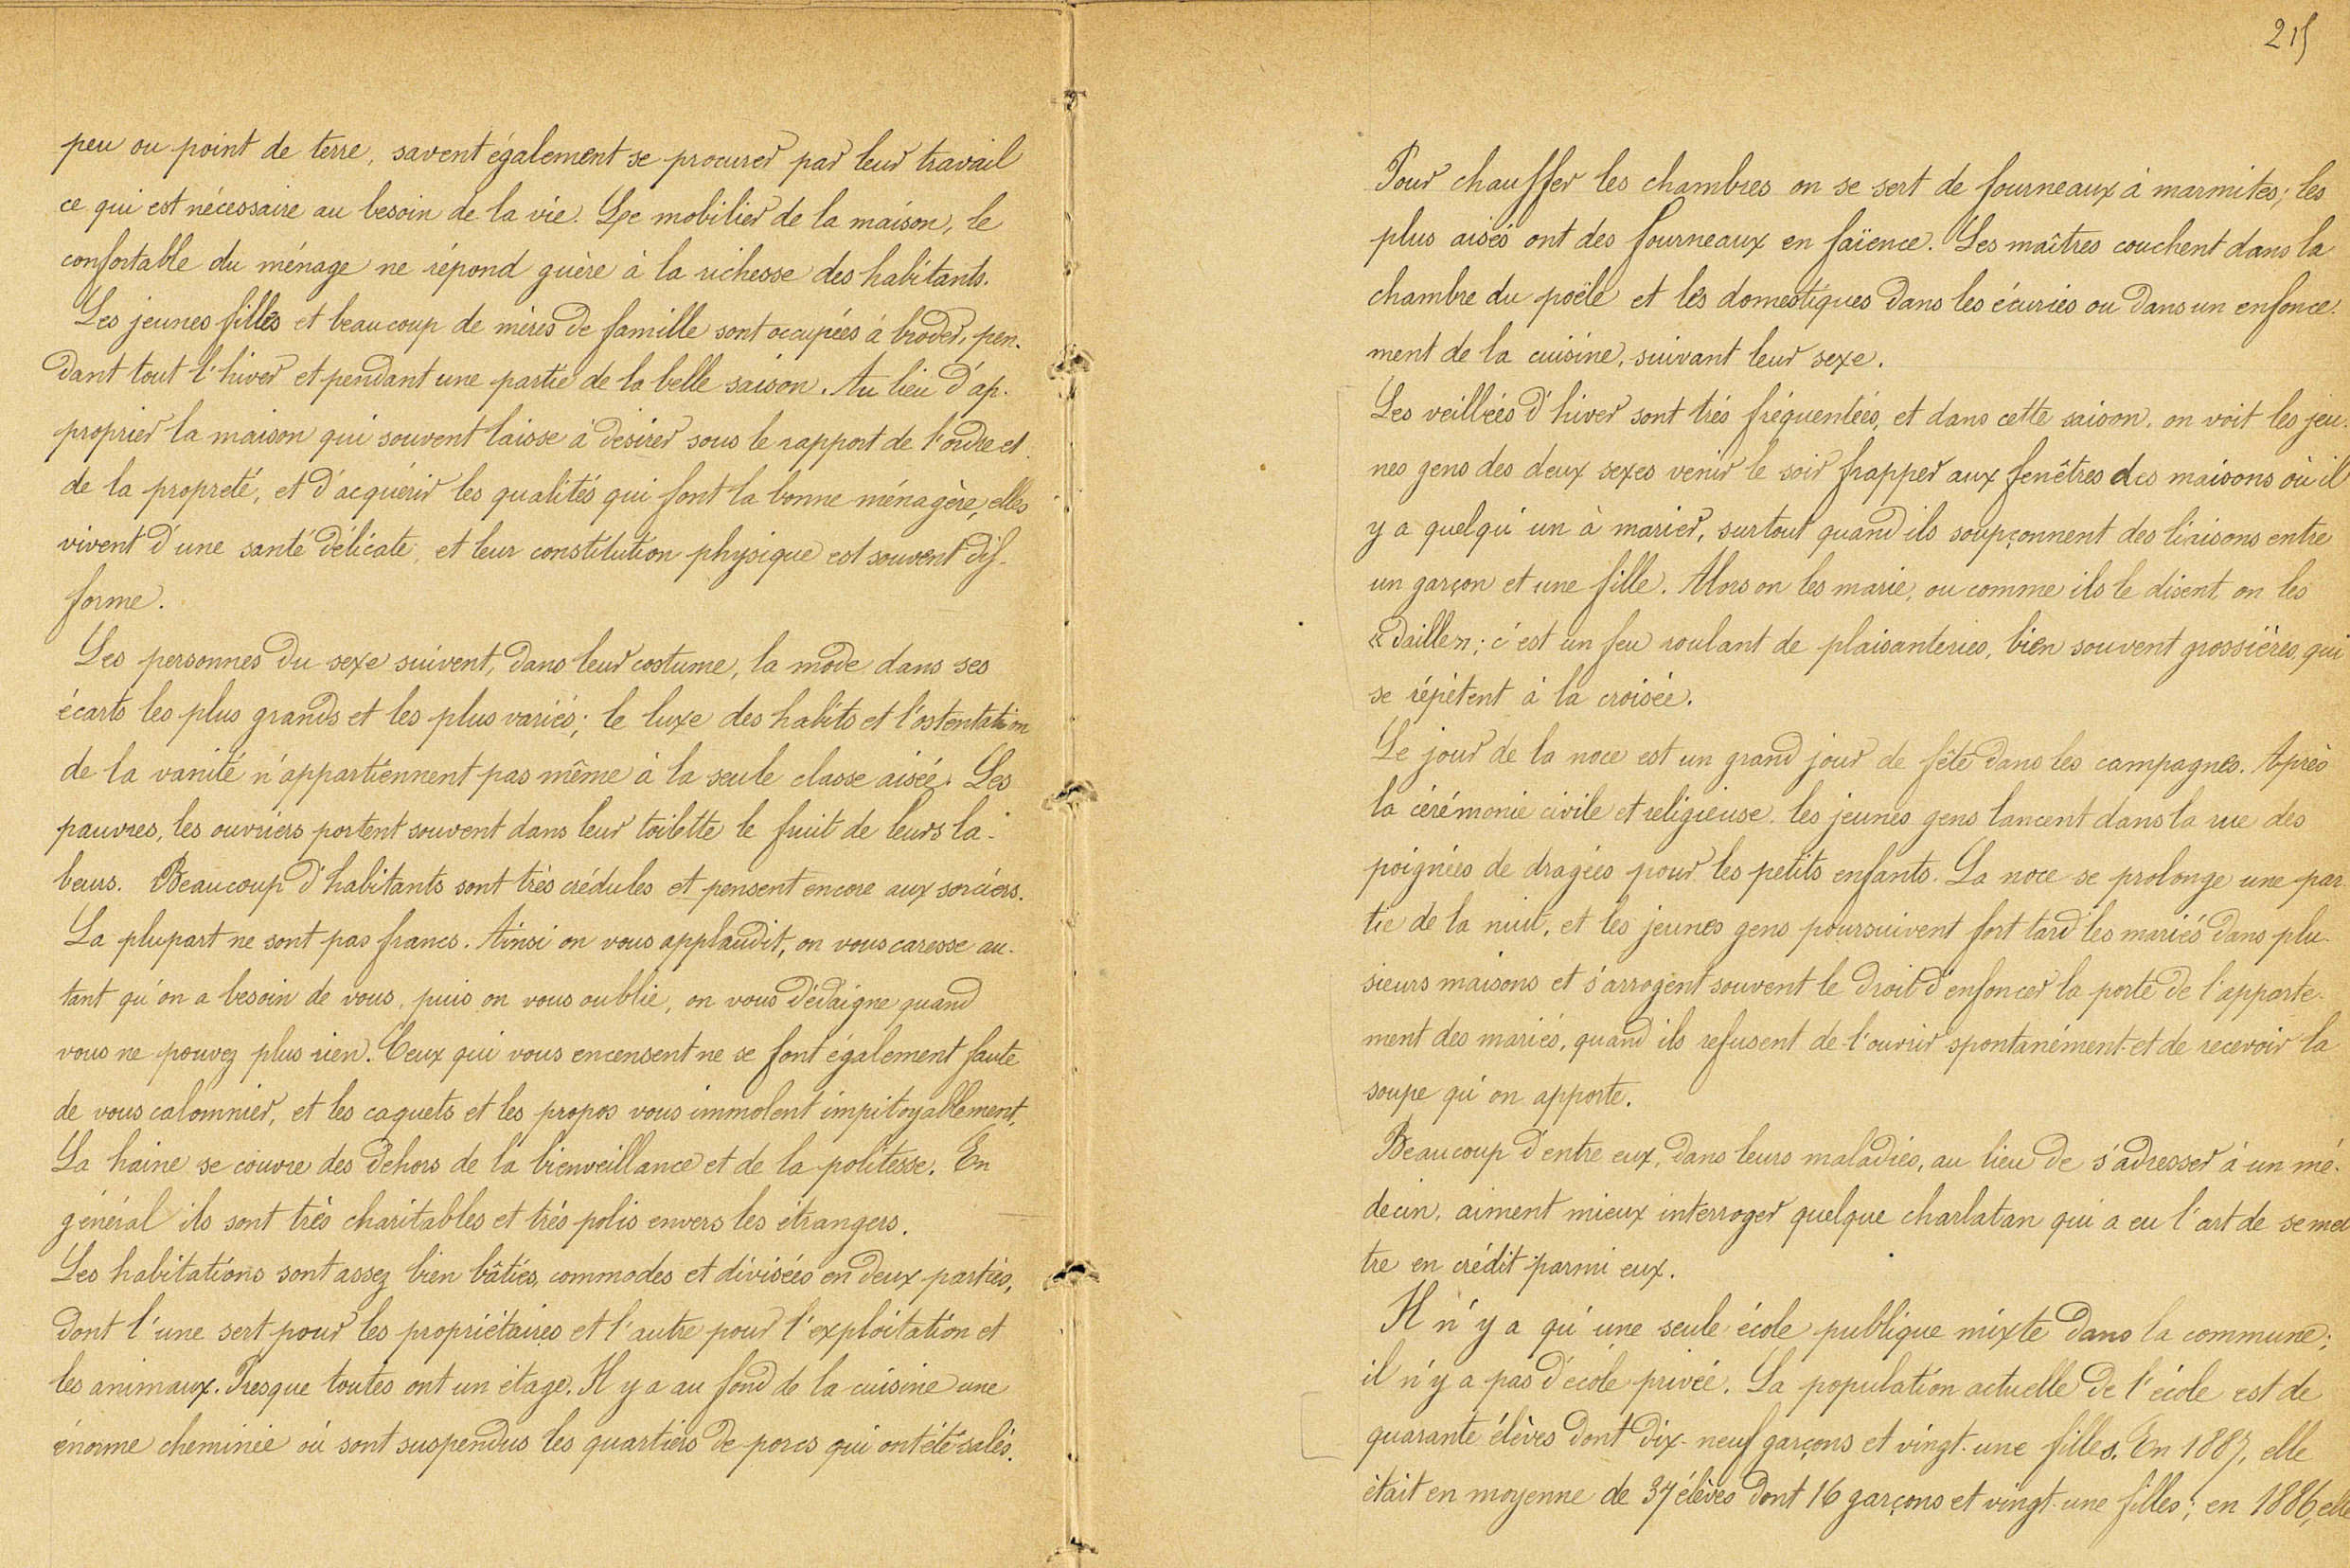 peu ou point de terre, savent également se procurer par leur travail
ce qui est nécessaire au besoin de la vie. Le mobilier de la maison, le
confortable du ménage ne répond guère à la richesse des habitants.
Les jeunes filles et beaucoup de mères de famille sont occupées à broder, pen-
dant tout l'hiver et pendant une partie de la belle saison. Au lieu d'ap-
proprier la maison qui souvent laisse à désirer sous le rapport de l'ordre et
de la propreté, et d'acquérir les qualités qui font la bonne ménagère, elles
vivent d'une santé délicate, et leur constitution physique est souvent dif-
forme.
Les personnes du sexe suivent, dans leur costume, la mode dans ses
écarts les plus grands et les plus variés; le luxe des habits et l'ostentation
de la vanité n'appartiennent pas même à la seule classe aisée. Les
pauvres, les ouvriers portent souvent dans leur toilette le fruit de leurs la-
beurs. Beaucoup d'habitants sont très crédules et pensent encore aux sorciers.
La plupart ne sont pas francs. Ainsi on vous applaudit, on vous caresse au-
tant qu'on a besoin de vous, puis on vous oublie, on vous dédaigne quand
vous ne pouvez plus rien. Ceux qui vous encensent ne se font également faute
de vous calomnier, et les caquets et les propos vous immolent impitoyablement.
La haine se couvre des dehors de la bienveillance et de la politesse. En
général ils sont très charitables et très polis envers les étrangers.
Les habitations sont assez bien bâties, commodes et divisées en deux parties,
dont l'une sert pour les propriétaires et l'autre pour l'exploitation et
les animaux. Presque toutes ont un étage. Il y a au fond de la cuisine une
énorme cheminée où sont suspendus les quartiers de porcs qui ont été salés.
215
Pour chauffer les chambres on se sert de fourneaux à marmites; les
plus aisés ont des fourneaux en faïence. Les maîtres couchent dans la
chambre du poële et les domestiques dans les écuries ou dans un enfonce-
ment de la cuisine, suivant leur sexe.
Les veillées d'hiver sont très fréquentées, et dans cette saison, on voit les jeu-
nes gens des deux sexes venir le soir frapper aux fenêtres des maisons où il
y a quelqu'un à marier, surtout quand ils soupçonnent des liaisons entre
un garçon et une fille. Alors on les marie, ou comme ils le disent, on les
«daille»; c'est un feu roulant de plaisanteries, bien souvent grossières, qui
se répètent à la croisée.
Le jour de la noce est un grand jour de fête dans les campagnes. Après
la cérémonie civile et religieuse les jeunes gens lancent dans la rue des
poignées de dragées pour les petits enfants. La noce se prolonge une par-
tie de la nuit, et les jeunes gens poursuivent fort tard les mariés dans plu-
sieurs maisons et s'arrogent souvent le droit d'enfoncer la porte de l'apparte-
ment des mariés, quand ils refusent de l'ouvrir spontanément et de recevoir la
soupe qu'on apporte.
Beaucoup d'entre eux, dans leurs maladies, au lieu de s'adresser à un mé-
decin, aiment mieux interroger quelque charlatan qui a eu l'art de se met
tre en crédit parmi eux.
Il n'y a qu'une seule école publique mixte dans la commune;
il n'y a pas d'école privée. La population actuelle de l'école est de
quarante élèves dont dix-neuf garçons et vingt-une filles. En 1887, elle
était en moyenne de 37 élèves dont 16 garçons et vingt-une filles; en 1886, elle